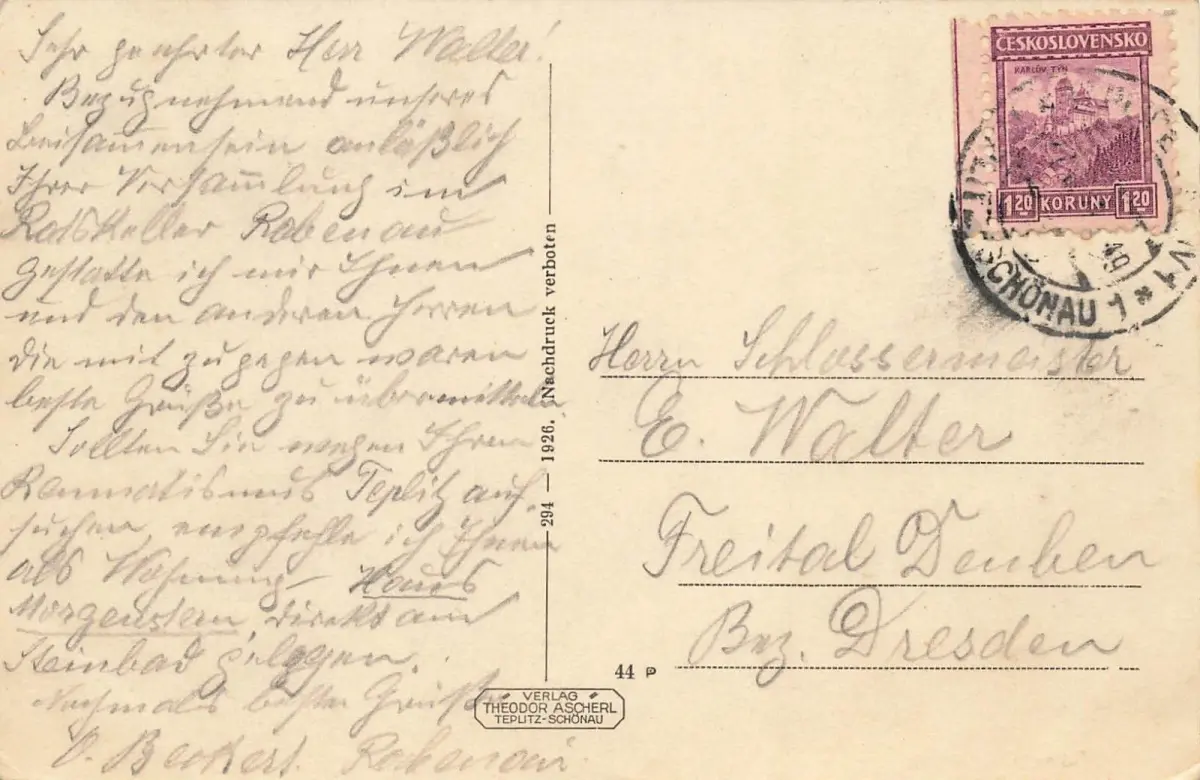 Sehr geehrter Herr Walter!
Bezugnehmend unseres
Beisam̅enseins anläßlich
Ihrer Versam̅lung im
Ratskeller Rabenau
gestatte ich mir Ihnen
und den anderen Herren
die mit zugegen waren
beste Grüße zu übermitteln.
Sollten Sie wegen Ihren
Reumatismus Teplitz auf-
suchen empfehle ich Ihnen
als Wohnung Haus
Morgenstern, direkt am
Steinbad gelegen.
Nochmals beste Grüße
O. Beckert. Rabenau.
294 — 1926. Nachdruck verboten
ČESKOSLOVENSKO
KARLŮV TÝN
1·20 KORUNY 1·20
SCHÖNAU 1 *
Herrn Schlossermeister
E. Walter
Freital Deuben
Bez. Dresden
44 P
VERLAG
THEODOR ASCHERL
TEPLITZ-SCHÖNAU